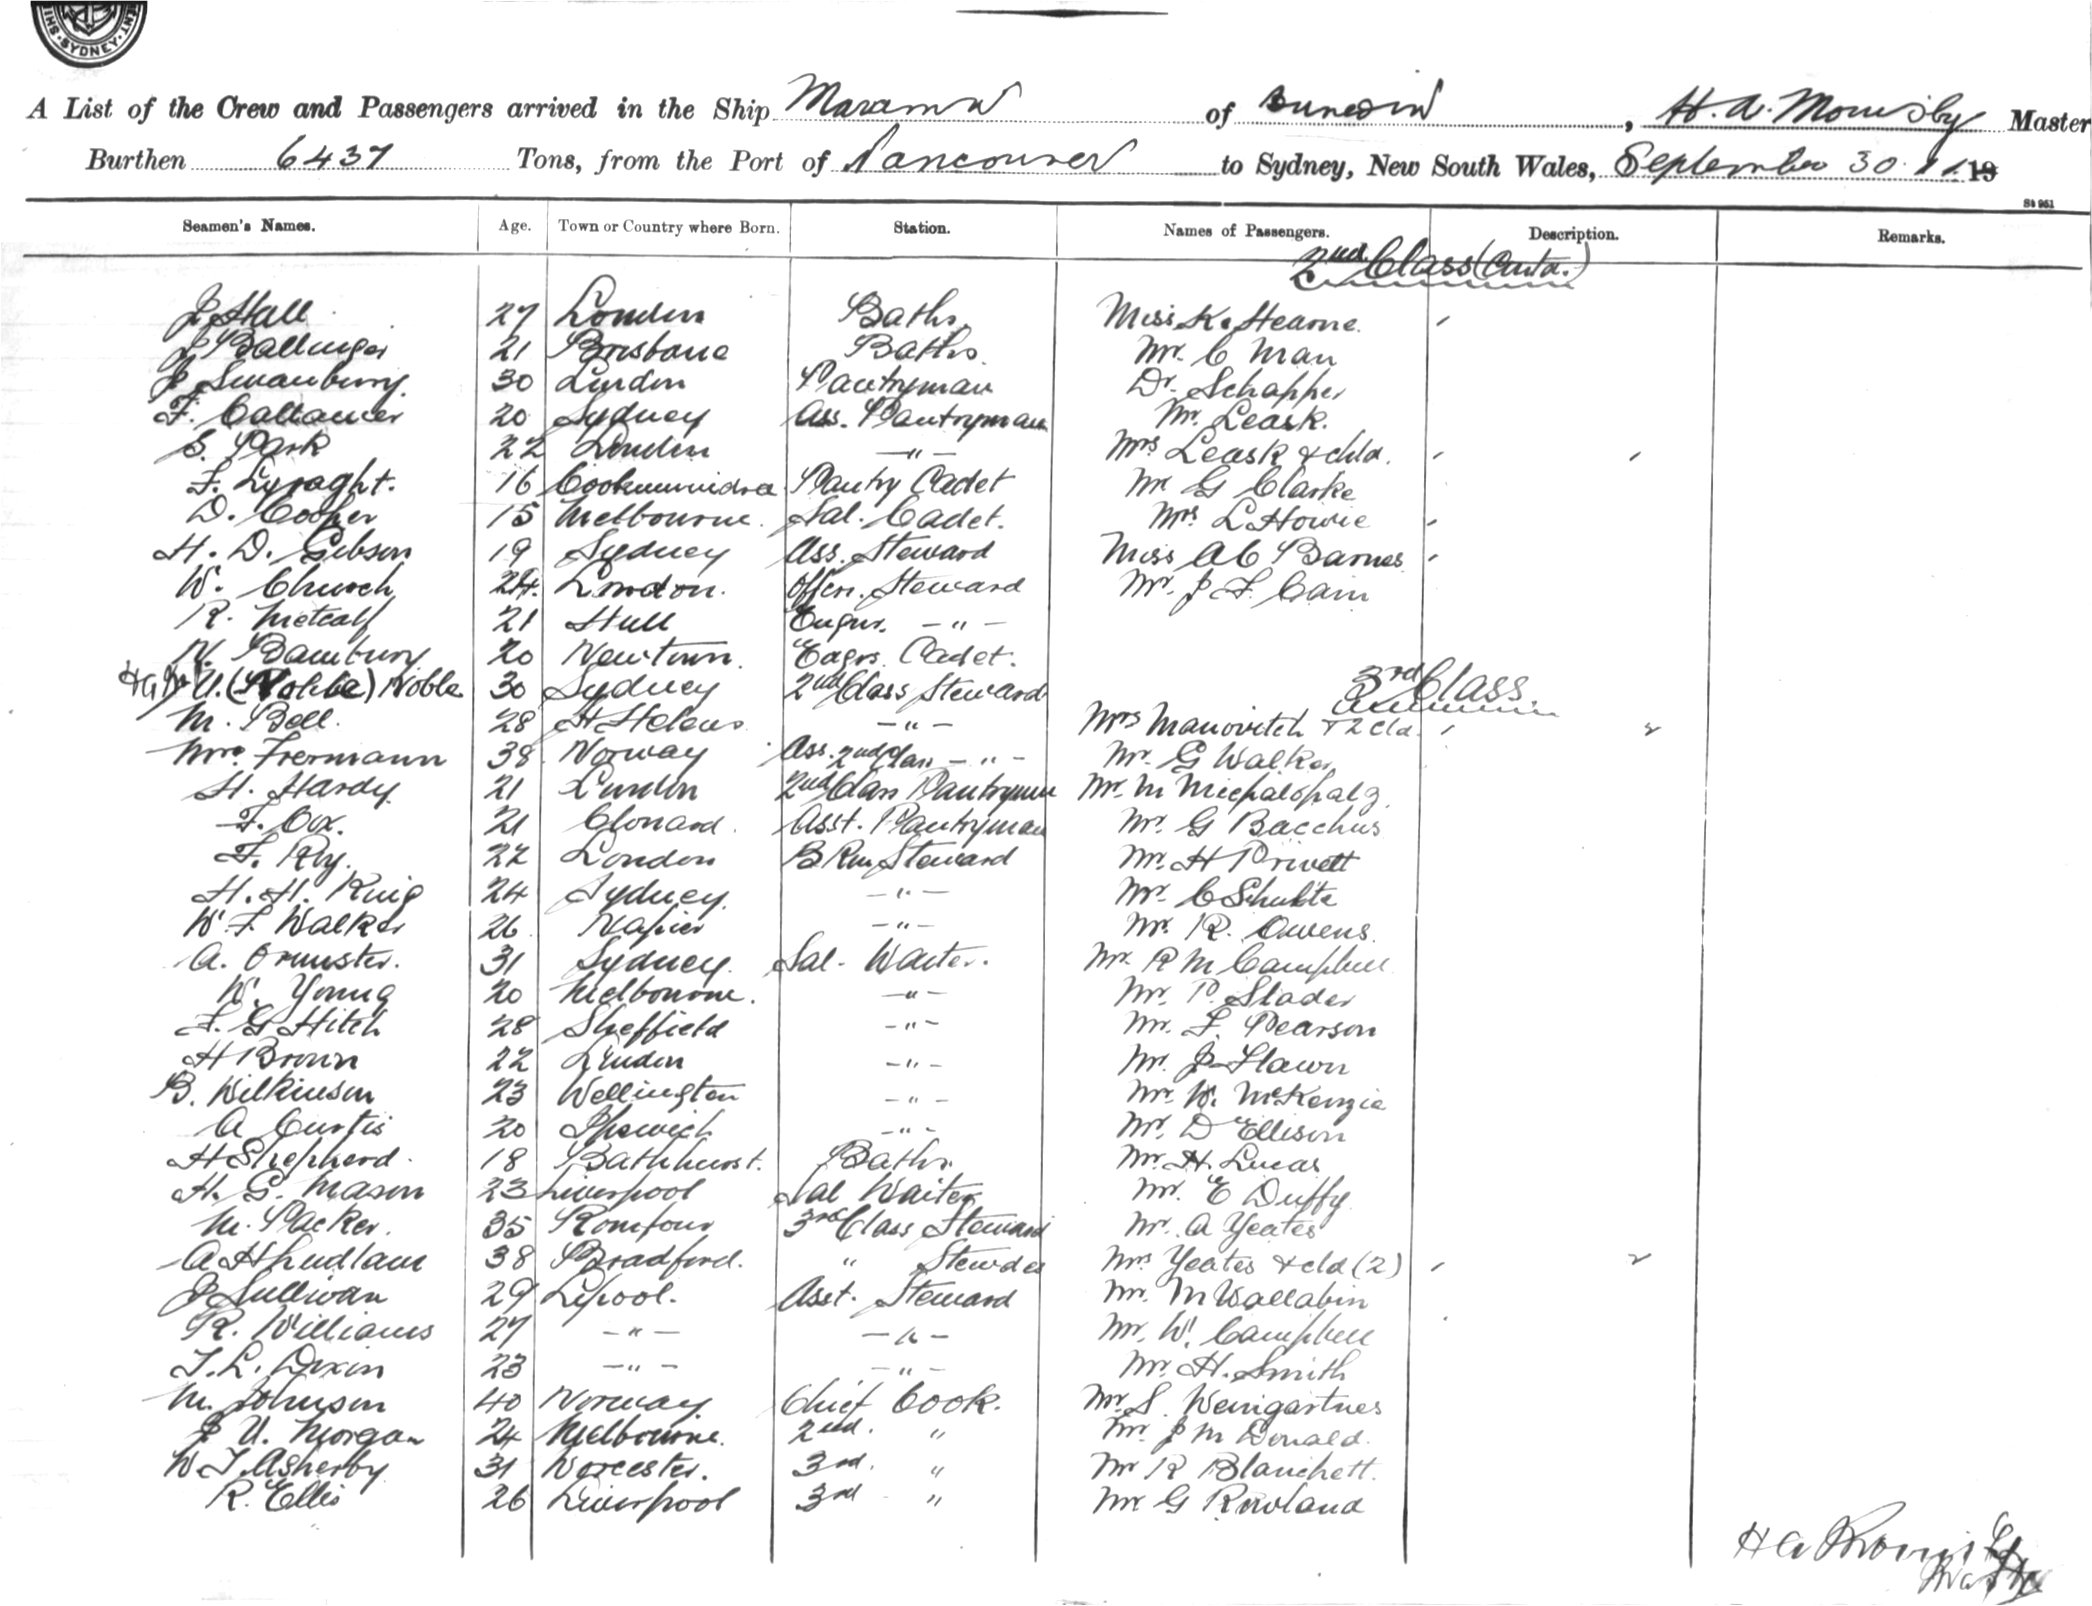 SYDNEY
A List of the Crew and Passengers arrived in the Ship Marama of Dunedin, H. A. Morrisby Master
Burthen 6437 Tons, from the Port of Vancouver to Sydney, New South Wales, September 30. 11. 19
St 961
Seamen's Names. Age. Town or Country where Born. Station. Names of Passengers. Description. Remarks.
2nd Class (Contd.)
J Hall 27 London Baths Miss K. Hearne
J Ballinger 21 Brisbane Baths Mr. C Man
J Swanbury 30 London Pantryman Dr. Schapper
F. 20 Sydney Ass. Pantryman Mr. Leask.
S. Park 22 London -"- Mrs Leask & chld.
F. Lysaght. 16 Pantry Cadet Mr G Clarke
D. Cooper 15 Melbourne. Sal. Cadet. Mrs L Howie
H. D. Gibson 19 Sydney Ass. Steward Miss A C Barnes
W. Church 24. London. Offcrs. Steward Mr. J. F. Cain
R. Metcalf 21 Hull Engnr. -"-
N. Bambury 20 Newtown. Engrs. Cadet.
U. (Noble) Noble 30 Sydney 2nd Class Steward
3rd Class.
M. Bell. 28 St Helens -"- Mrs Manovitch & 2 cld.
Mrs Frermann 38 Norway Ass. 2nd Class -"- Mr. G Walker
H. Hardy. 21 London 2nd Class Pantryman Mr. M
F. Cox. 21 Clonard. Asst. Pantryman Mr. G Bacchus
F. Roy. 22 London B Rm Steward Mr. H Privett
H. H. King 24 Sydney. -"- Mr. C Schultz
W. F Walker 26 Napier -"- Mr. R. Owens.
A. Ormister. 31 Sydney. Sal. Waiter. Mr. R M Campbell
W. Young 20 Melbourne. -"- Mr. P. Slader
F. G Hitch 28 Sheffield -"- Mr. F. Pearson
H Brown 22 London -"- Mr. J Flawn
B. Wilkinson 23 Wellington -"- Mr. W. McKenzie
A Curtis 20 Ipswich -"- Mr. D Ellison
H Shepherd. 18 Bathhurst. Baths. Mr. H. Lucas
H. G. Mason 23 Liverpool Sal Waiter Mr. E Duffy
M. Packer. 35 3rd Class Steward Mr. A Yeates
A H Ludlam 38 Bradford. " Stewdes Mrs Yeates & cld (2)
J Sullivan 29 L'pool. Asst. Steward Mr. M Wallabin
R. Williams 27 -"- -"- Mr. W. Campbell
T. L. Dixin 23 -"- -"- Mr. H. Smith
M. Johnson 40 Norway Chief Cook. Mr. S. Weingartner
J U. Morgan 24 Melbourne. 2nd. " Mr. J M Donald.
W T. Asherby 31 Worcester. 3rd. " Mr R Blanchett.
R. Ellis 26 Liverpool 3rd " Mr G Rowland
H A Morrisby
Master